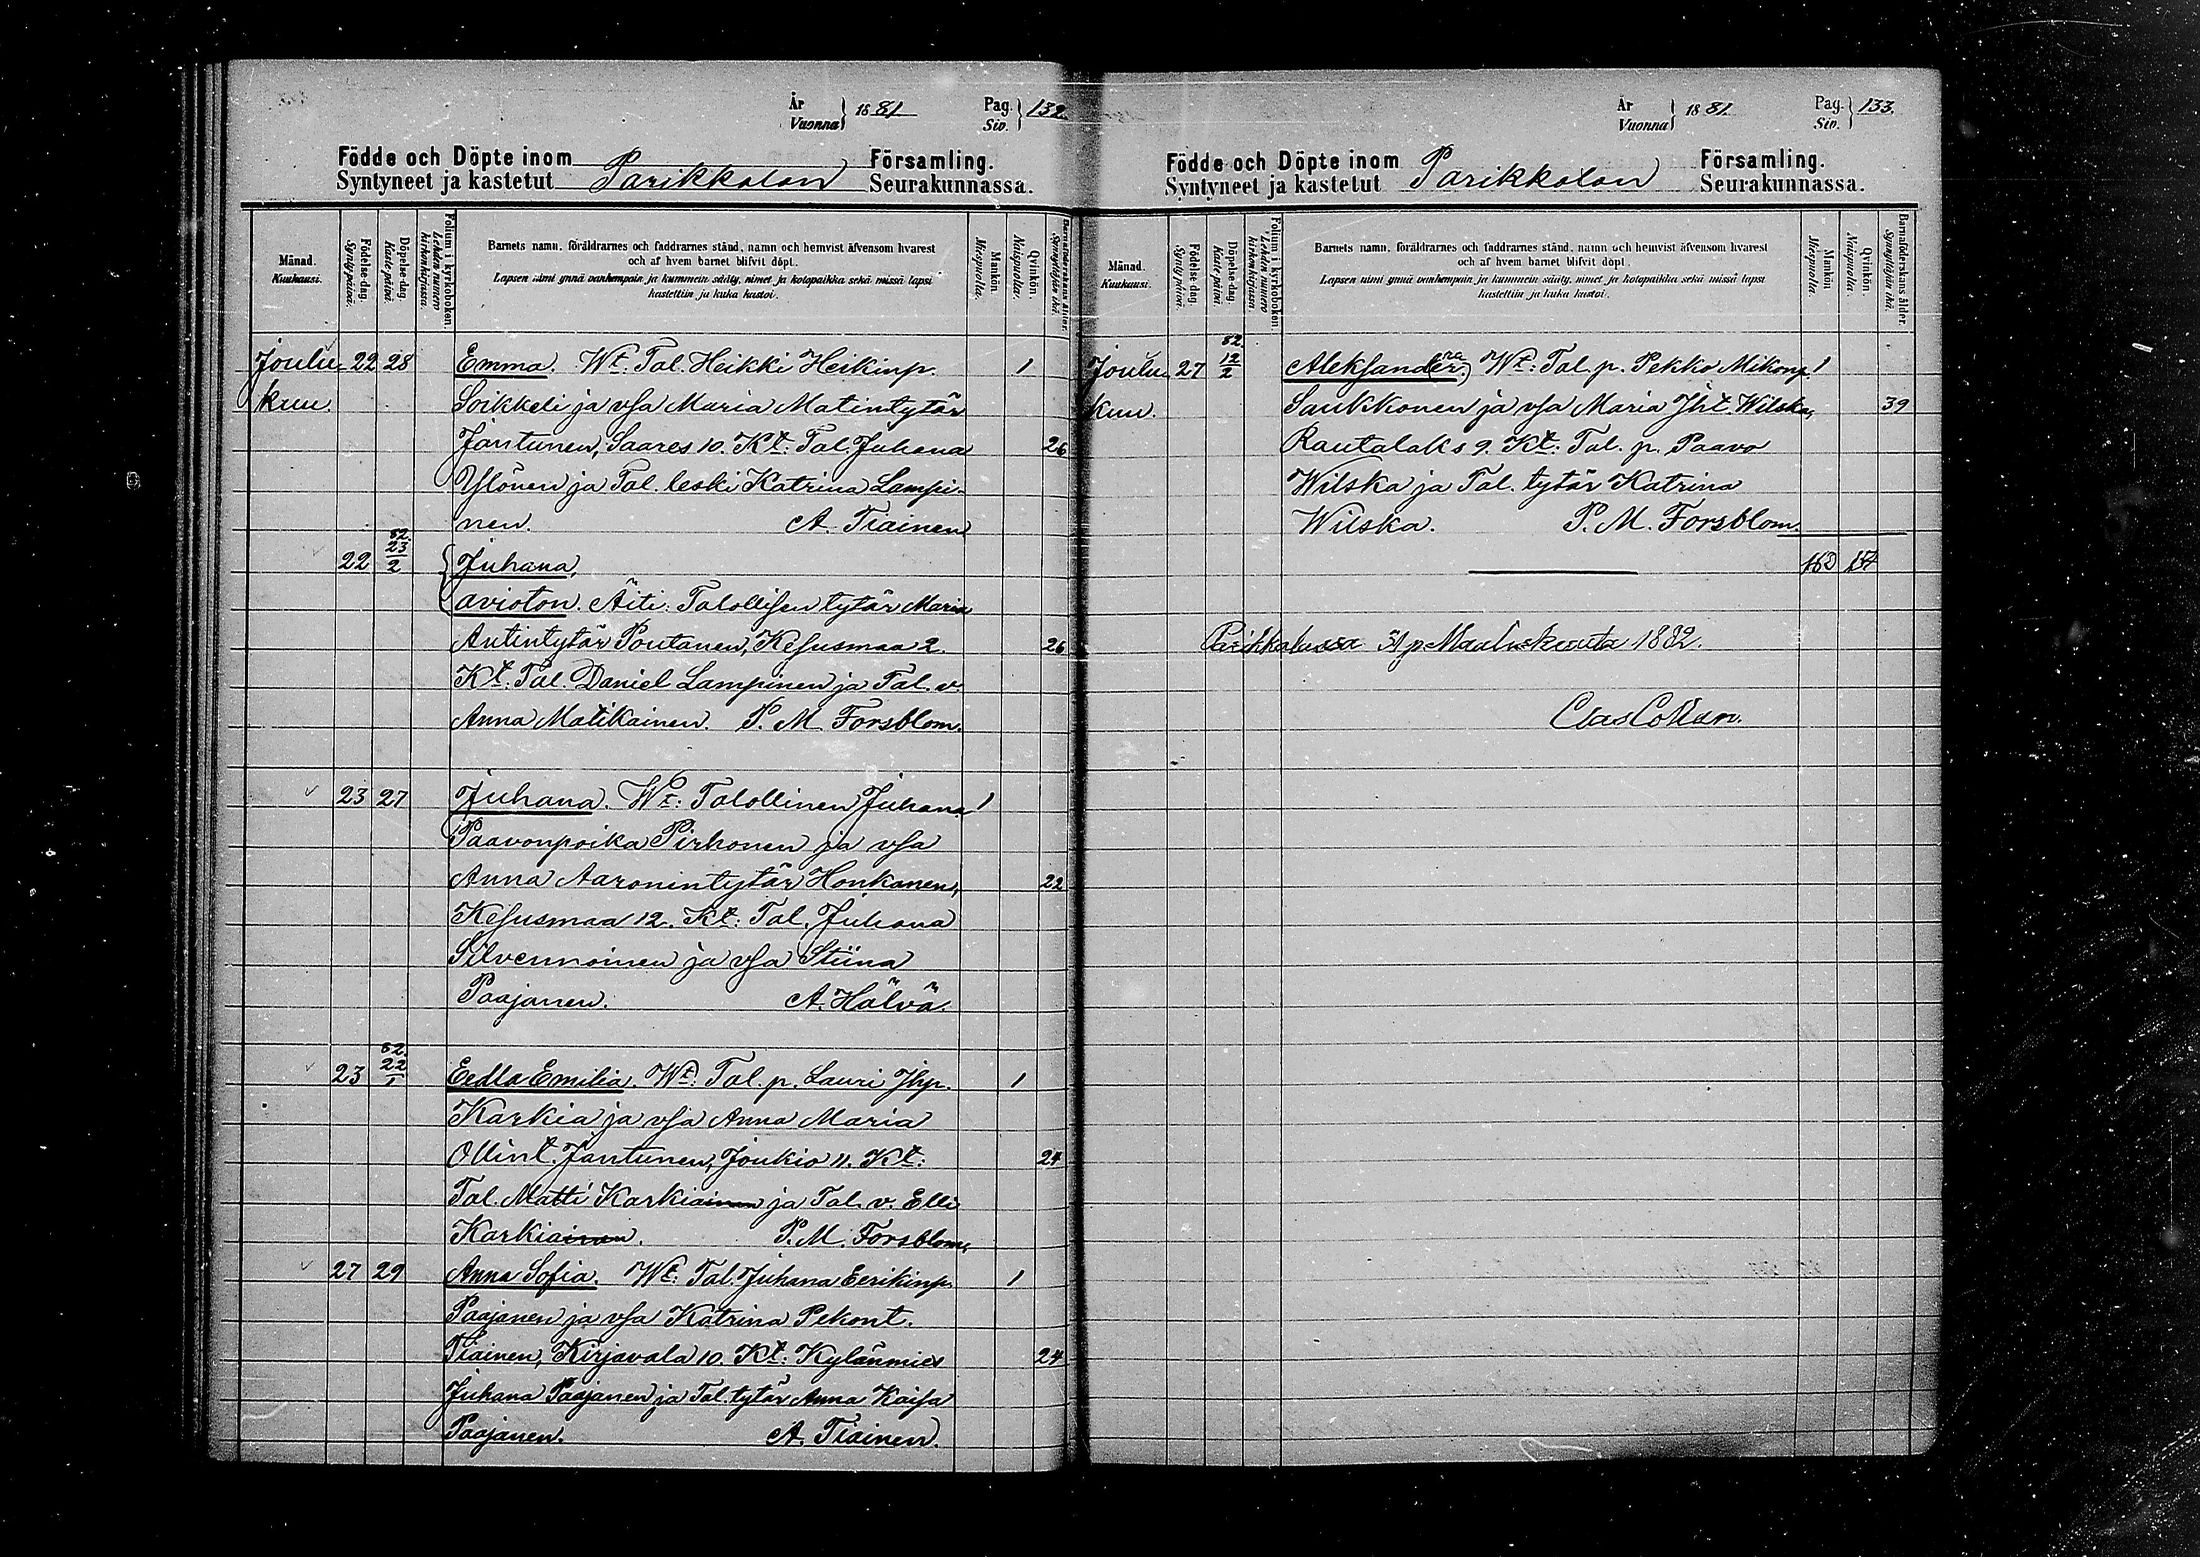 År
Vuonna } 1881 Pag.
Siv. } 132.
Födde och Döpte inom Parikkalan Församling.
Syntyneet ja kastetut Seurakunnassa.
Månad. Kuukausi.
Födelse-dag. Syntypäivä.
Döpelse-dag. Kastepäivä.
Folium i kyrkoboken. Lehden numero kirkonkirjassa.
Barnets namn, föräldrarnes och faddrarnes stånd, namn och hemvist äfvensom hvarest
och af hvem barnet blifvit döpt.
Lapsen nimi ynnä vanhempain ja kummein sääty, nimet ja kotopaikka sekä missä lapsi
kastettiin ja kuka kastoi.
Mankön. Miespuolta.
Qvinkön. Naispuolta.
Barnaföderskans ålder. Synnyttäjän ikä.
Joulu 22 28 Emma. Wt: Tal. Heikki Heikinp. 1
kuu. Soikkeli ja vsa Maria Matintytär
Jantunen, Saares 10. Kt: Tal. Juhana 26
Ylönen ja Tal. leski Katrina Lampi-
nen. A. Tiainen
22 82. 23/2 Juhana,
avioton. Äiti: Talollisen tytär Maria
Antintytär Poutanen, Kesusmaa 2. 26
Kt: Tal. Daniel Lampinen ja Tal. v.
Anna Matikainen. P. M. Forsblom.
23 27 Juhana. Wt: Talollinen Juhana 1
Paavonpoika Pirhonen ja vsa
Anna Aaronintytär Honkanen, 22
Kesusmaa 12. Kt: Tal. Juhana
Silvennoinen ja vsa Stiina
Paajanen. A. Hälvä.
23 82. 22/1 Eedla Emilia. Wt: Tal. p. Lauri Jhp. 1
Karkia ja vsa Anna Maria
Ollint. Jantunen, Joukio 11. Kt: 24
Tal. Matti Karkiainen ja Tal. v. Elli
Karkiainen. P. M. Forsblom.
27 29 Anna Sofia. Wt: Tal. Juhana Eerikinp. 1
Paajanen ja vsa Katrina Pekont.
Tiainen, Kirjavala 10. Kt: Kylänmies 24
Juhana Paajanen ja Tal. tytär Anna Kaisa
Paajanen. A. Tiainen.
År
Vuonna } 1881. Pag.
Siv. } 133.
Födde och Döpte inom Parikkalan Församling.
Syntyneet ja kastetut Seurakunnassa.
Månad. Kuukausi.
Födelse-dag. Syntypäivä.
Döpelse-dag. Kastepäivä.
Folium i kyrkoboken. Lehden numero kirkonkirjassa.
Barnets namn, föräldrarnes och faddrarnes stånd, namn och hemvist äfvensom hvarest
och af hvem barnet blifvit döpt.
Lapsen nimi ynnä vanhempain ja kummein sääty, nimet ja kotopaikka sekä missä lapsi
kastettiin ja kuka kastoi.
Mankön Miespuolta.
Qvinkön. Naispuolta.
Barnaföderskans ålder. Synnyttäjän ikä.
Joulu 27 82. 12/2 Aleksander. Wt: Tal. p. Pekko Mikonp. 1
kuu. Saukkonen ja vsa Maria Jht. Wilska, 39
Rautalaks 9. Kt: Tal. p. Paavo
Wilska ja Tal. tytär Katrina
Wilska. P. M. Forsblom.
Parikkalassa 31 p. Maaliskuuta 1882.
Clas Collan.